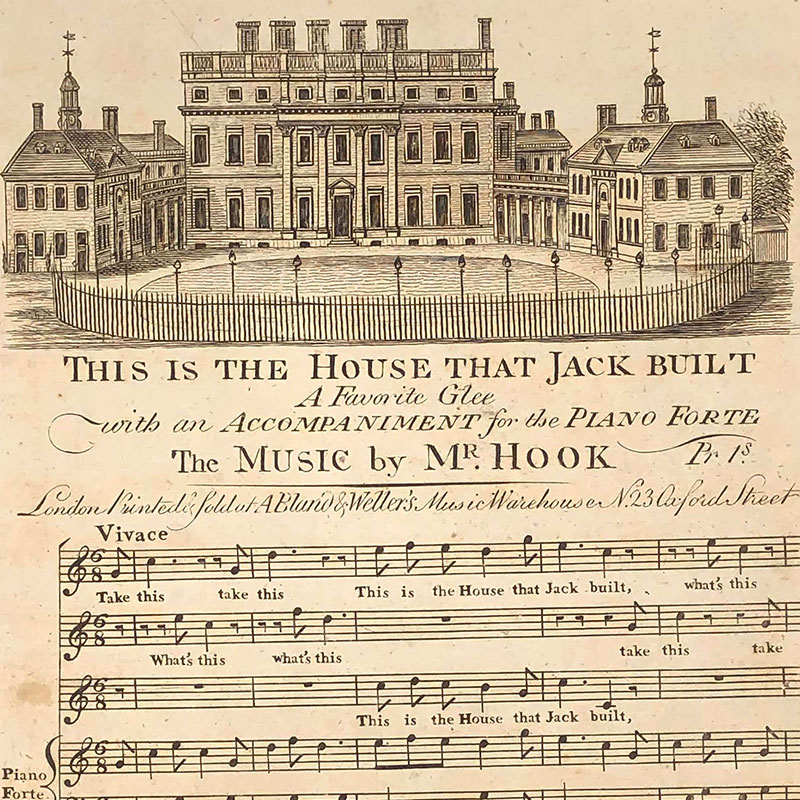 THIS IS THE HOUSE THAT JACK BUILT
A Favorite Glee
with an ACCOMPANIMENT for the PIANO FORTE
The MUSIC by MR. HOOK Pr. 1s
London Printed & Sold at A Bland & Weller's Music Warehouse No. 23 Oxford Street
Vivace
6 8
Take this take this This is the House that Jack built, what's this
6 8
What's this what's this take this take
6 8
This is the House that Jack built,
6 8
Piano
Forte.